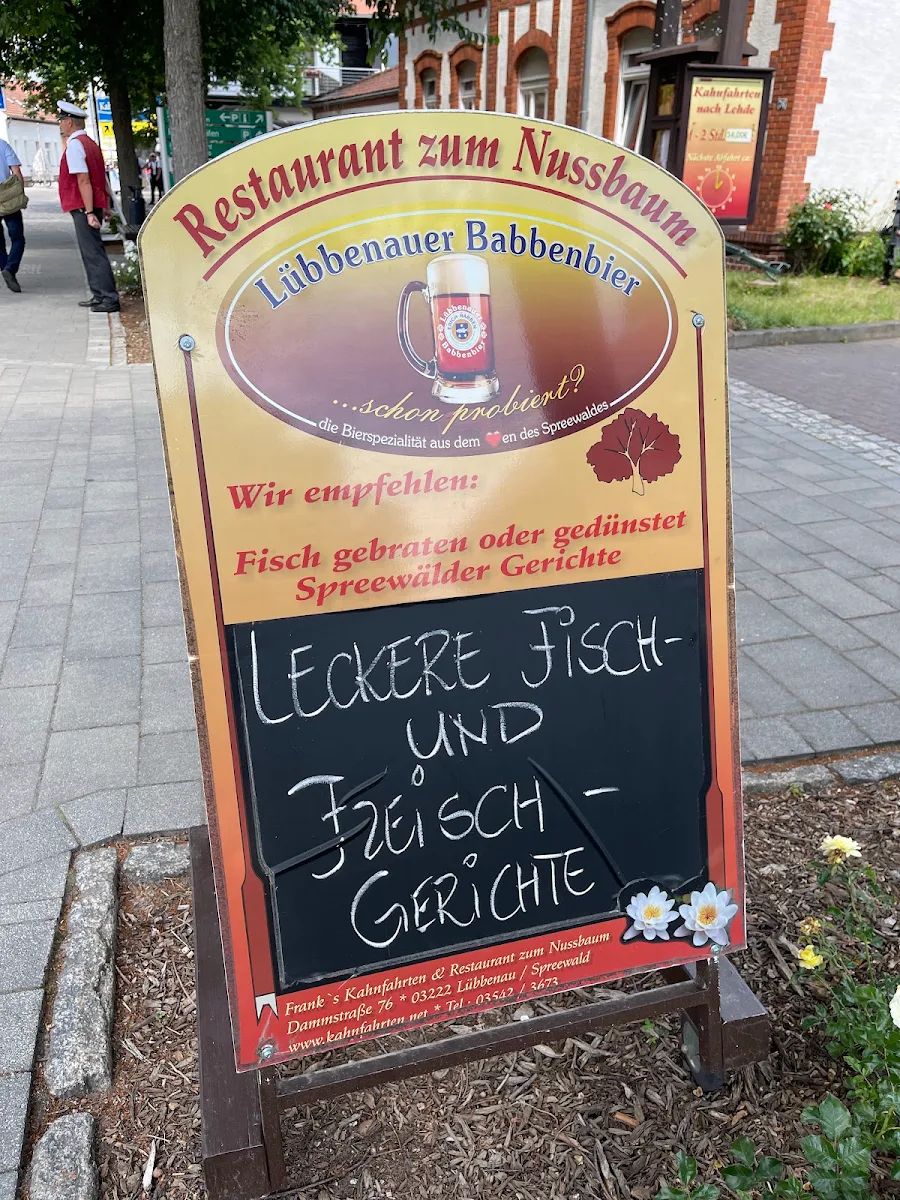 Restaurant zum Nussbaum
Lübbenauer Babbenbier
Lübbenauer
Babbenbier
...schon probiert?
die Bierspezialität aus dem ❤en des Spreewaldes
Wir empfehlen:
Fisch gebraten oder gedünstet
Spreewälder Gerichte
LECKERE FISCH-
UND
FLEISCH -
GERICHTE
Frank`s Kahnfahrten & Restaurant zum Nussbaum
Dammstraße 76 * 03222 Lübbenau / Spreewald
www.kahnfahrten.net * Tel.: 03542 / 3673
Kahnfahrten
nach Lehde
- 2 Std.
Nächste Abfahrt ca:
P i